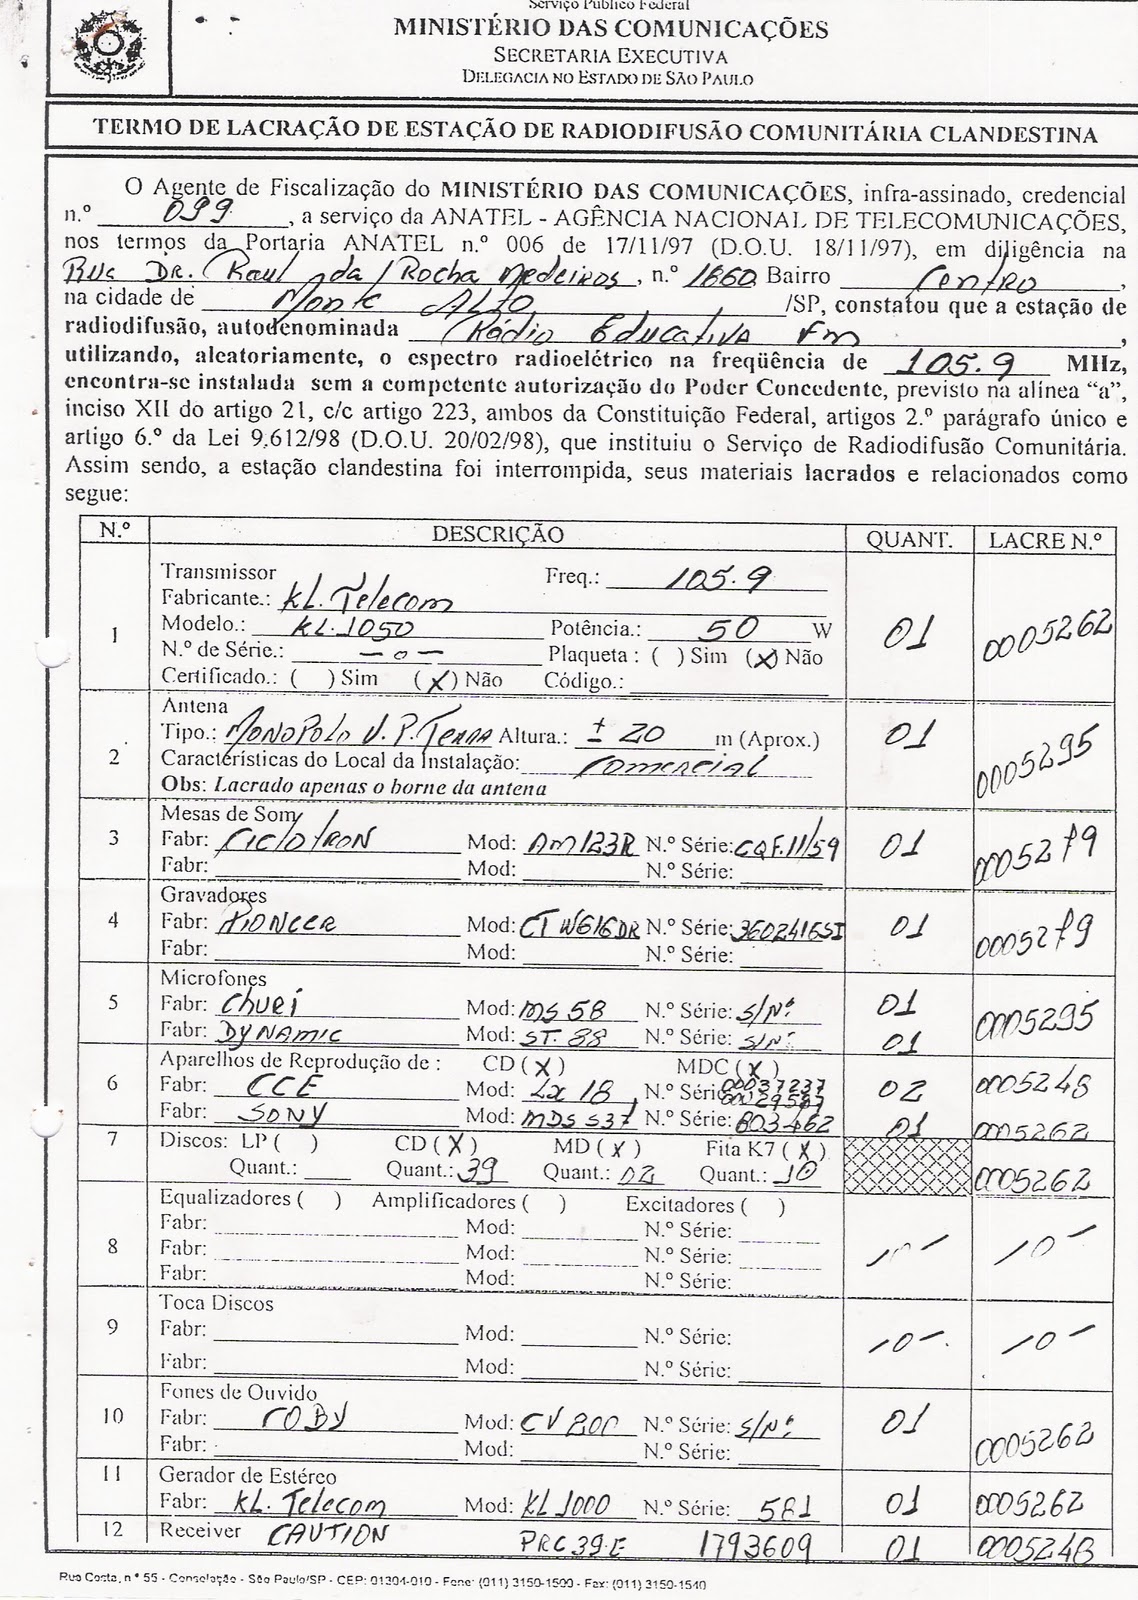 Serviço Público Federal
MINISTÉRIO DAS COMUNICAÇÕES
SECRETARIA EXECUTIVA
DELEGACIA NO ESTADO DE SÃO PAULO
TERMO DE LACRAÇÃO DE ESTAÇÃO DE RADIODIFUSÃO COMUNITÁRIA CLANDESTINA
O Agente de Fiscalização do MINISTÉRIO DAS COMUNICAÇÕES, infra-assinado, credencial
n.º 099, a serviço da ANATEL - AGÊNCIA NACIONAL DE TELECOMUNICAÇÕES,
nos termos da Portaria ANATEL n.º 006 de 17/11/97 (D.O.U. 18/11/97), em diligência na
Rua DR. Raul da Rocha Medeiros, n.º 1860 Bairro Centro,
na cidade de Monte ALTO /SP, constatou que a estação de
radiodifusão, autodenominada Rádio Educativa Fm,
utilizando, aleatoriamente, o espectro radioelétrico na freqüência de 105.9 MHz,
encontra-se instalada sem a competente autorização do Poder Concedente, previsto na alínea “a”,
inciso XII do artigo 21, c/c artigo 223, ambos da Constituição Federal, artigos 2.º parágrafo único e
artigo 6.º da Lei 9.612/98 (D.O.U. 20/02/98), que instituiu o Serviço de Radiodifusão Comunitária.
Assim sendo, a estação clandestina foi interrompida, seus materiais lacrados e relacionados como
segue:
N.º DESCRIÇÃO QUANT. LACRE N.º
Transmissor Freq.: 105.9
Fabricante.: KL. Telecom
1 Modelo.: KL.1050 Potência.: 50 W 01 0005262
N.º de Série.: -o- Plaqueta : ( ) Sim (X) Não
Certificado.: ( ) Sim (X) Não Código.:
Antena
Tipo.: MONOPOLO V. P. TERRA Altura.: ± 20 m (Aprox.) 01
2 Características do Local da Instalação: Comercial 0005295
Obs: Lacrado apenas o borne da antena
Mesas de Som
3 Fabr: CICLOTRON Mod: AM123R N.º Série: CQF.11/59 01 0005279
Fabr: Mod: N.º Série:
Gravadores
4 Fabr: PIONEER Mod: CTW616DR N.º Série: 3602416SI 01 0005279
Fabr: Mod: N.º Série:
Microfones
5 Fabr: Chuei Mod: MS 58 N.º Série: S/Nº 01 0005295
Fabr: DYNAMIC Mod: ST. 88 N.º Série: S/Nº 01
Aparelhos de Reprodução de : CD (X) MDC (X)
6 Fabr: CCE Mod: LX 18 N.º Série 00037237 02 0005248
Fabr: SONY Mod: MDS S37 N.º Série: 803462 01 0005262
7 Discos: LP ( ) CD (X) MD (X) Fita K7 (X)
Quant.: Quant.: 39 Quant.: 02 Quant.: 10 0005262
Equalizadores ( ) Amplificadores ( ) Excitadores ( )
Fabr: Mod: N.º Série:
8 Fabr: Mod: N.º Série: -o- -o-
Fabr: Mod: N.º Série:
Toca Discos
9 Fabr: Mod: N.º Série: -o- -o-
Fabr: Mod: N.º Série:
Fones de Ouvido
10 Fabr: COBY Mod: CV 200 N.º Série: S/Nº 01 0005262
Fabr: Mod: N.º Série:
11 Gerador de Estéreo
Fabr: KL. Telecom Mod: KL 1000 N.º Série: 581 01 0005262
12 Receiver CAUTION PRC39-E 1793609 01 0005248
Rua Costa, n º 55 - Consolação - São Paulo/SP - CEP: 01304-010 - Fone: (011) 3150-1500 - Fax: (011) 3150-1540